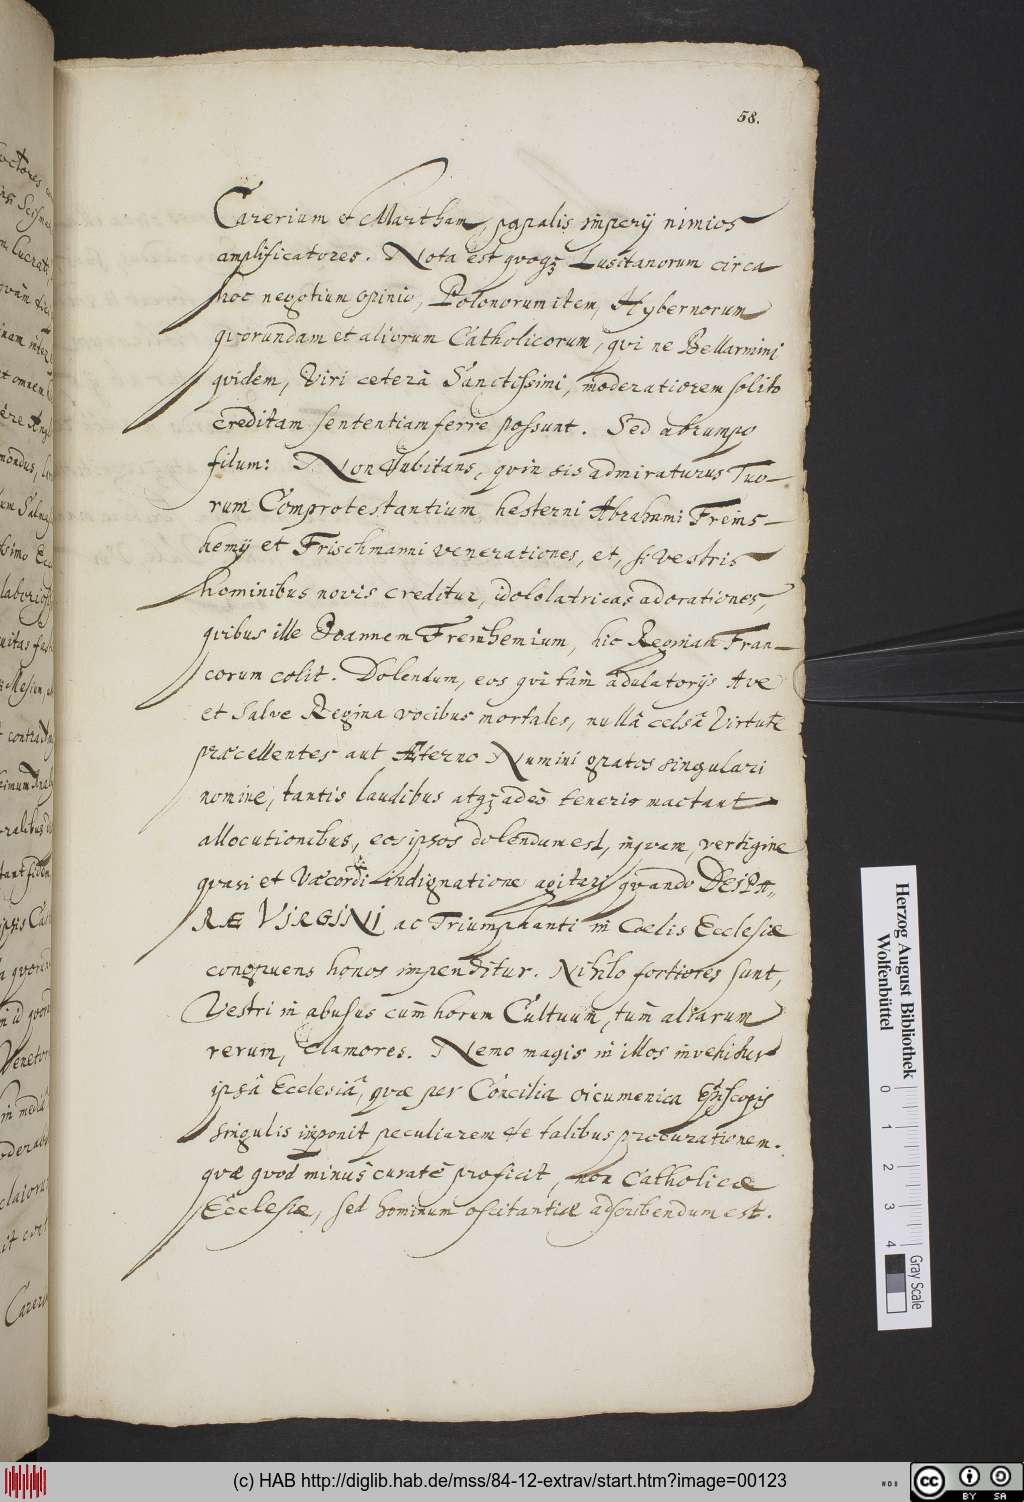 58.
Carerium et Martham, papalis imperij nimios
amplificatores. Nota est quoqꝫ Lusitanorum circa
hoc negotium opinio, Polonorum item, Hybernorum
quorundam et aliorum Catholicorum, qui ne Bellarmini
quidem, Viri ceterà Sanctissimi, moderatiorem solito
creditam sententiam ferre possunt. Sed abrumpo
filum: Non dubitans, quin sis admiraturus Tuo-
rum Comprotestantium hesterni Abrahami Freins-
hemij et Frischmanni venerationes, et, si vestris
hominibus novis creditur, idololatricas adorationes,
quibus ille Joannem Freinshemium, hic Reginam Fran-
corum colit. Dolendum, eos qui tam adulatorijs Ave
et Salve Regina vocibus mortales, nullâ celsâ Virtute
præcellentes aut Æterno Numini gratos singulari
nomine, tantis laudibus atqꝫ adeò teneris mactant
allocutionibus, eos ipsos dolendum est, inquam, vertigine
quasi et Væcordi indignatione agitari quando DEIPA-
RÆ VIRGINI ac Triumphanti in Cœlis Ecclesiæ
congruens honos impenditur. Nihilo fortiores sunt,
Vestri in abusus cum horum Cultuum, tum aliarum
rerum, clamores. Nemo magis in illos invehitur
ipsâ Ecclesiâ, quæ per Concilia oicumenica Episcopis
singulis imponit peculiarem de talibus procurationem.
quæ quod minus curatè proficit, non Catholicæ
Ecclesiæ, sed hominum oscitantiæ adscribendum est.
Herzog August Bibliothek
Wolfenbüttel
0 1 2 3 4
Gray Scale
(c) HAB http://diglib.hab.de/mss/84-12-extrav/start.htm?image=00123
cc BY SA